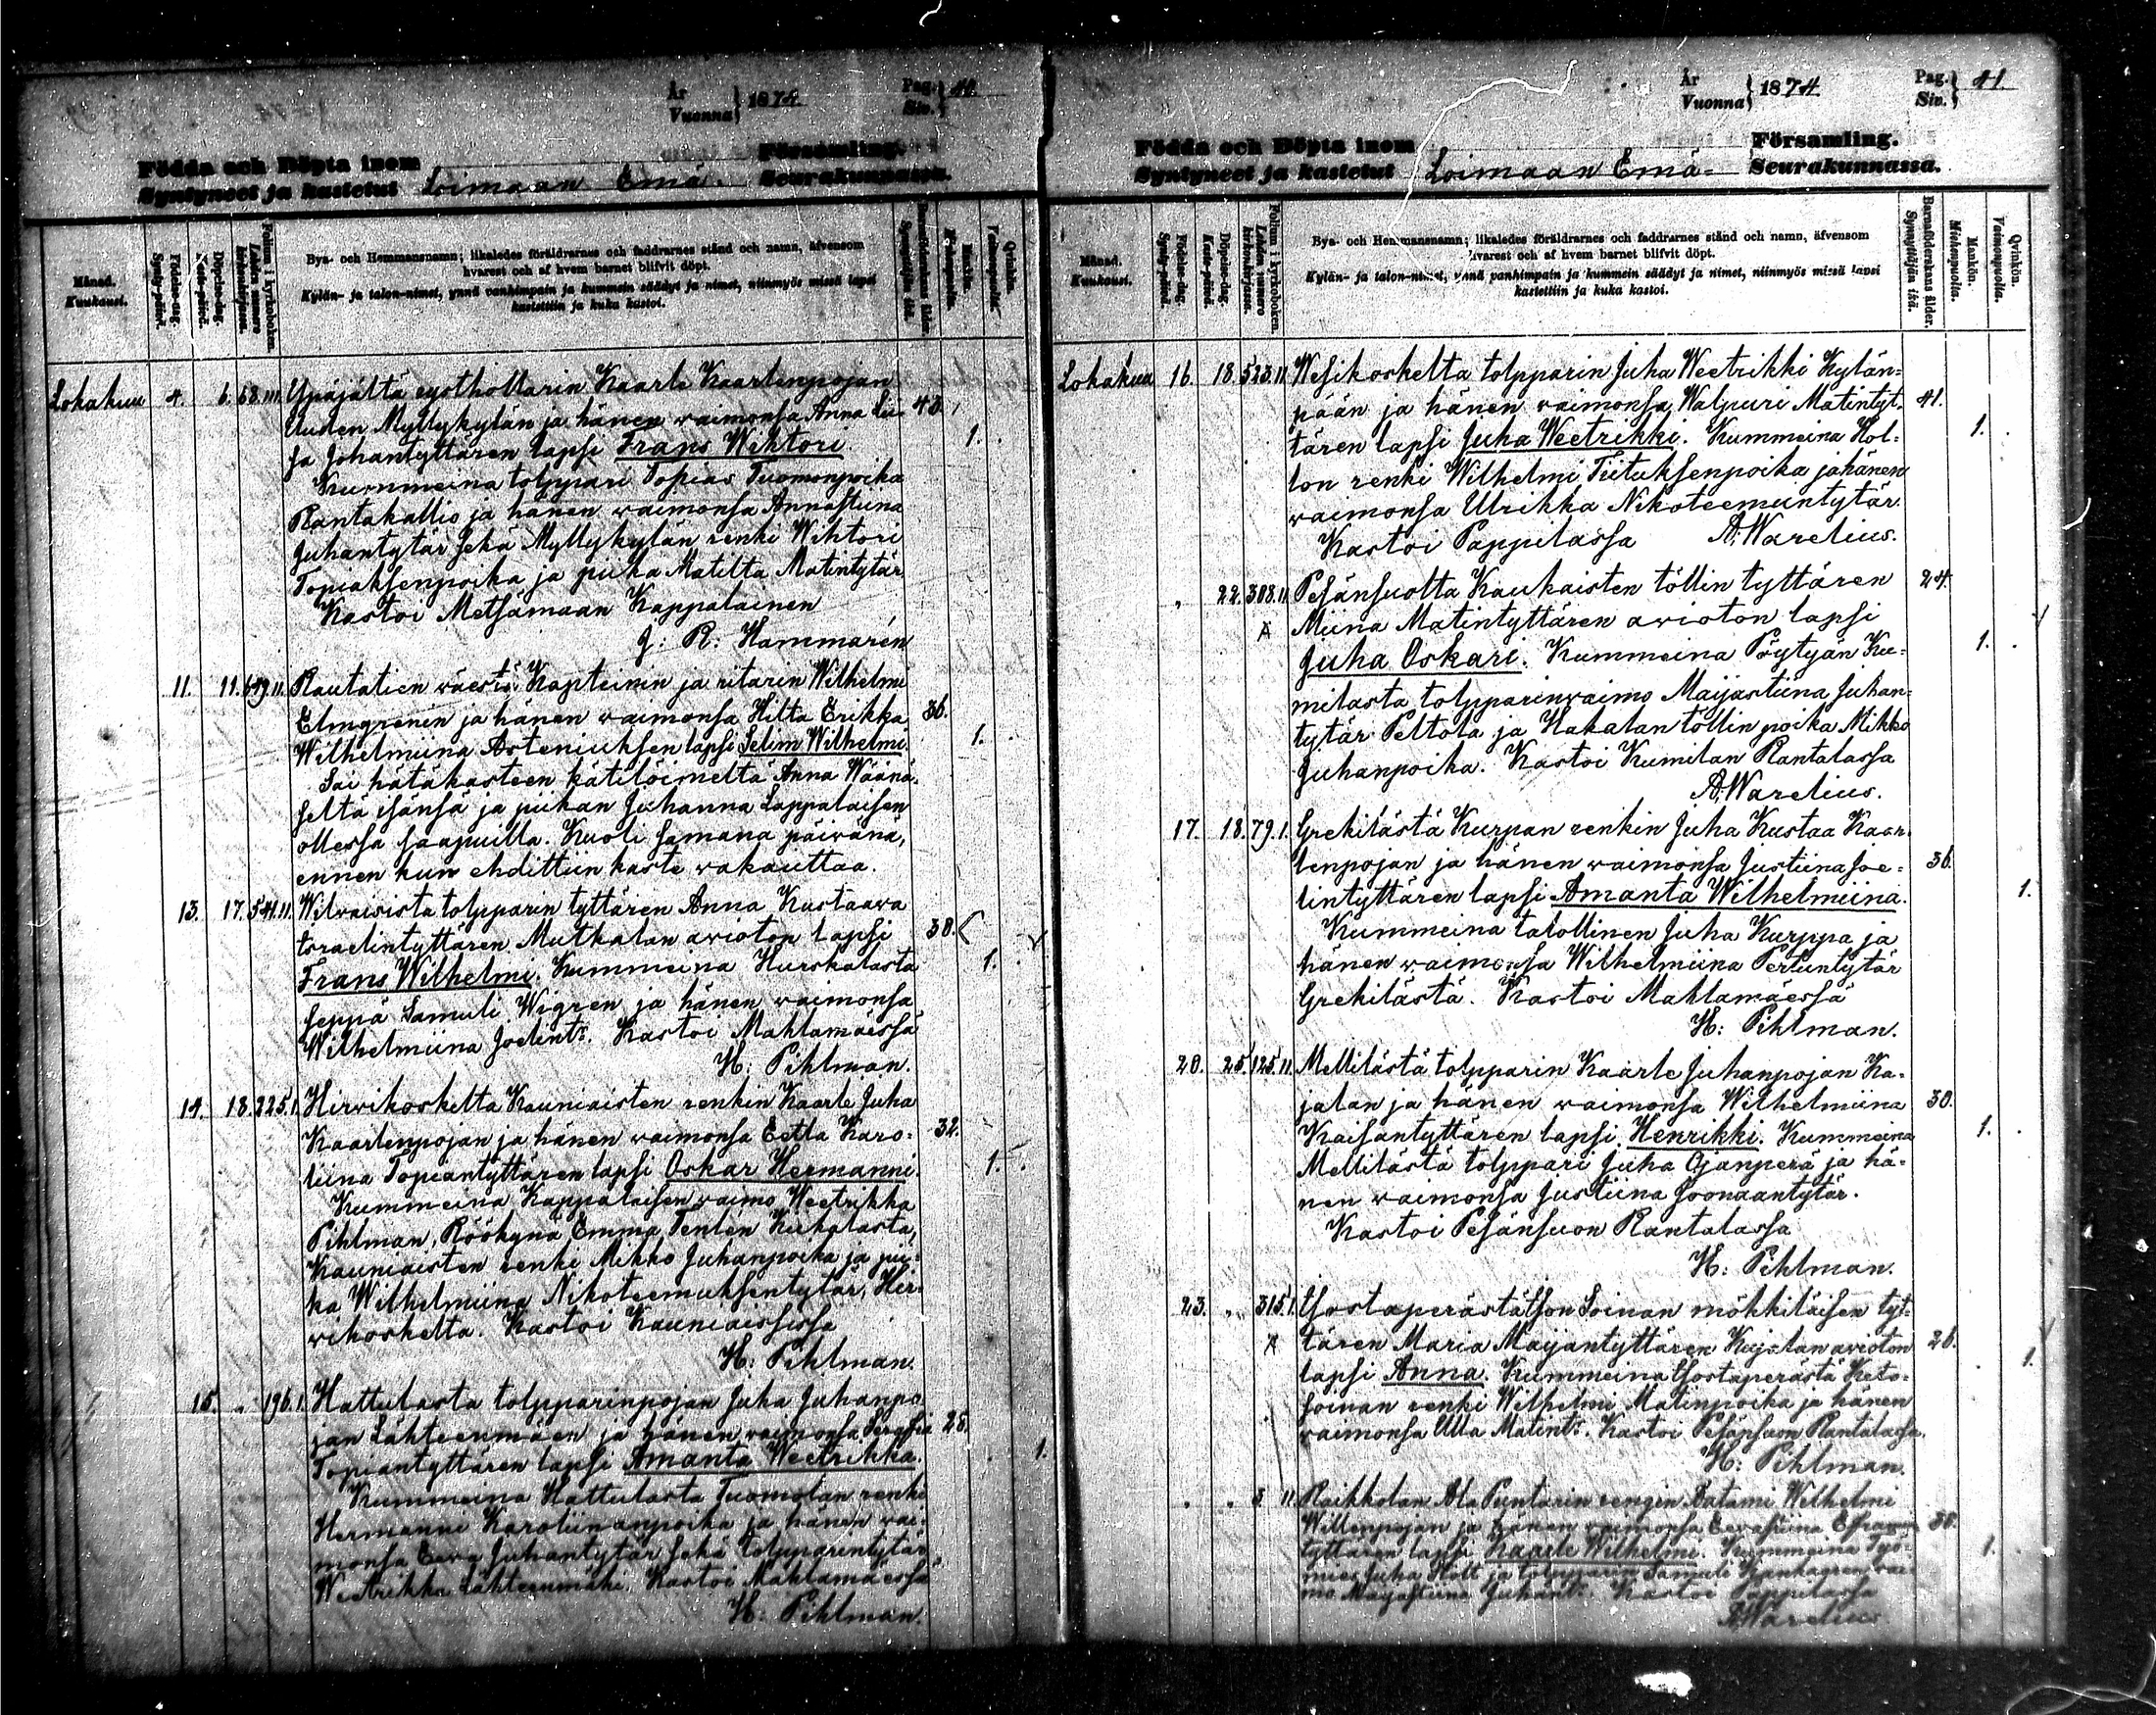 År
Vuonna } 1874
Pag.
Siv. } 40.
Födda och Döpta inom
Syntyneet ja kastetut Loimaan Emä- Församling.
Seurakunnassa.
Månad.
Kuukausi.
Födelse-dag.
Synty-päivä.
Döpelse-dag.
Kaste-päivä.
Folium i kyrkoboken.
Lehden numero kirkonkirjassa.
Bya- och Hemmansnamn; likaledes föräldrarnes och faddrarnes stånd och namn, äfvensom
hvarest och af hvem barnet blifvit döpt.
Kylän- ja talon-nimet, ynnä vanhimpain ja kummein säädyt ja nimet, niinmyös missä lapsi
kastettiin ja kuka kastoi.
Barnaföderskans ålder.
Synnyttäjän ikä.
Mankön.
Miehenpuolia.
Qvinkön.
Vaimonpuolia.
Lokakuu 4. 6. 68.III. Ypäjältä Kaarle Kaarlenpojan
Uuden Myllykylän ja hänen vaimonsa Anna Lii- 43.
sa Johantyttären lapsi Frans Wihtori 1.
Kummeina tolppari Topias Tuomonpoika
Rantakallio ja hänen vaimonsa Annastiina
Juhantytär sekä Myllykylän renki Wihtori
Topiaksenpoika ja piika Matilta Matintytär
Kastoi Metsämaan Kappalainen
J: R: Hammarén
11. 11. 649.II. Rautatien väestö: Kapteinin ja ritarin Wilhelmi
Elmgrenin ja hänen vaimonsa Hilta Erikka 36.
Wilhelmiina Asteniuksen lapsi Selim Wilhelmi. 1.
Sai hätäkasteen kätilöimeltä Anna Wäänä-
seltä isänsä ja piikan Juhanna Lappalaisen
ollessa saapuilla. Kuoli samana päivänä,
ennen kun ehdittiin kaste vakauttaa.
13. 17. 541.II. Wilvaisista tolpparin tyttären Anna Kustaava
Israelintyttären Mutkalan avioton lapsi 38.
Frans Wilhelmi. Kummeina Hurskalasta 1.
seppä Samuli Wigren ja hänen vaimonsa
Wilhelmiina Joelint:r. Kastoi Mahlamäessä
H: Pihlman.
14. 18. 225.I. Hirvikoskelta Kauniaisten renkin Kaarle Juha
Kaarlenpojan ja hänen vaimonsa Eetla Karo- 32.
liina Topiantyttären lapsi Oskar Heemanni. 1.
Kummeina Kappalaisen vaimo Weetrikka
Pihlman, Röökynä Emma Tenlén Kukalasta,
Kauniaisten renki Mikko Juhanpoika ja pii-
ka Wilhelmiina Nikoteemuksentytär, Hir-
vikoskelta. Kastoi Kauniaisissa
H: Pihlman.
15. „ 196.I. Hattulasta tolpparinpojan Juha Juhanpo-
jan Lähteenmäen ja hänen vaimonsa Serafia 28.
Topiantyttären lapsi Amanta Weetrikka. 1.
Kummeina Hattulasta Tuomolan renki
Hermanni Karoliinanpoika ja hänen vai-
monsa Eeva Juhantytär sekä tolpparintytär
Weetrikka Lähteenmäki. Kastoi Mahlamäessä
H: Pihlman.
År
Vuonna } 1874
Pag.
Siv. } 41.
Födda och Döpta inom
Syntyneet ja kastetut Loimaan Emä- Församling.
Seurakunnassa.
Månad.
Kuukausi.
Födelse-dag.
Synty-päivä.
Döpelse-dag.
Kaste-päivä.
Folium i kyrkoboken.
Lehden numero kirkonkirjassa.
Bya- och Hemmansnamn; likaledes föräldrarnes och faddrarnes stånd och namn, äfvensom
hvarest och af hvem barnet blifvit döpt.
Kylän- ja talon-nimet, ynnä vanhimpain ja kummein säädyt ja nimet, niinmyös missä lapsi
kastettiin ja kuka kastoi.
Barnaföderskans ålder.
Synnyttäjän ikä.
Mankön.
Miehenpuolia.
Qvinkön.
Vaimonpuolia.
Lokakuu 16. 18. 523.II. Wesikoskelta tolpparin Juha Weetrikki Kylän-
pään ja hänen vaimonsa Walpuri Matintyt- 41.
tären lapsi Juha Weetrikki. Kummeina Hol- 1.
lon renki Wilhelmi Tiituksenpoika ja hänen
vaimonsa Ulrikka Nikoteemuntytär.
Kastoi Pappilassa A. Warelius.
„ 22. 308.II. Pesänsuolta Kaukaisten töllin tyttären 24.
A Miina Matintyttären avioton lapsi
Juha Oskari. Kummeina Pöytyän Ku- 1.
milasta tolpparinvaimo Maijastiina Juhan-
tytär Peltola ja Hakalan töllin poika Mikko
Juhanpoika. Kastoi Kumilan Rantalassa
A. Warelius.
17. 18. 79.I. Grekilästä Kurpan renkin Juha Kustaa Kaar-
lenpojan ja hänen vaimonsa Justiina Joe- 36.
lintyttären lapsi Amanta Wilhelmiina. 1.
Kummeina talollinen Juha Kurppa ja
hänen vaimonsa Wilhelmiina Pertuntytär
Grekilästä. Kastoi Mahlamäessä
H: Pihlman.
20. 25. 125.II. Mellilästä tolpparin Kaarle Juhanpojan Ka-
jalan ja hänen vaimonsa Wilhelmiina 30.
Kaisantyttären lapsi Henrikki. Kummeina 1.
Mellilästä tolppari Juha Ojanperä ja hä-
nen vaimonsa Justiina Joonaantytär.
Kastoi Pesänsuon Rantalassa
H: Pihlman.
23. „ 315.I. Isostaperästä Ison Soinan mökkiläisen tyt-
A tären Maria Maijantyttären avioton 26.
lapsi Anna. Kummeina Isostaperästä Keto- 1.
soinan renki Wilhelmi Matinpoika ja hänen
vaimonsa Ulla Matint:r. Kastoi Pesänsuon Rantalassa.
H: Pihlman.
„ „ II. Raikkolan Ala Puntarin rengin Aatami Wilhelmi
Willenpojan ja hänen vaimonsa Eevastiina 30.
tyttären lapsi Kaarle Wilhelmi. Kummeina Työ- 1.
mies Juha Holt ja tolpparin Samuli vai-
mo Maijastiina Juhant:r. Kastoi Pappilassa
A. Warelius